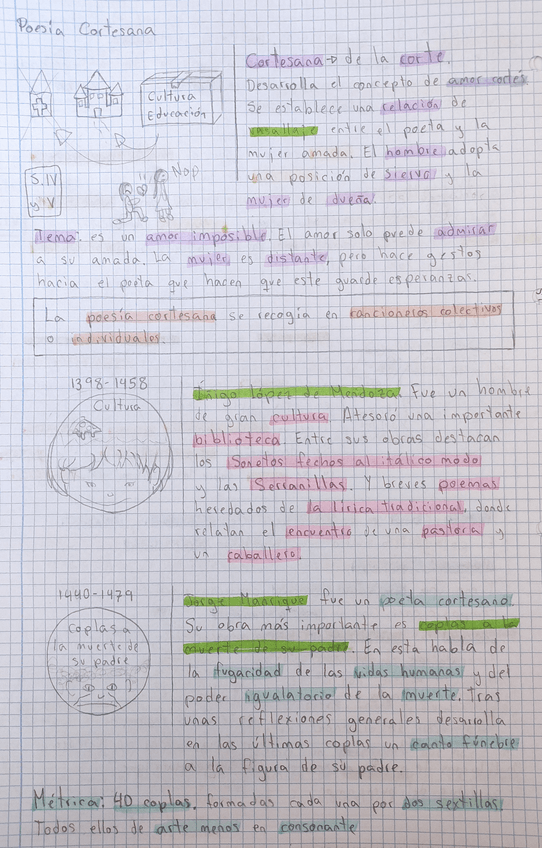 Poesía Cortesana
Cultura
Educación
S.IV
y V
Nop
Cortesana → de la corte.
Desarrolla el concepto de amor cortés
Se establece una relación de
vasallaje entre el poeta y la
mujer amada. El hombre adopta
una posición de siervo y la
mujer de dueña.
Tema: es un amor imposible. El amor solo puede admirar
a su amada. La mujer es distante, pero hace gestos
hacia el poeta que hacen que este guarde esperanzas.
La poesía cortesana se recogía en cancioneros colectivos
o individuales.
1398-1458
Cultura
Íñigo López de Mendoza. Fue un hombre
de gran cultura. Atesoró una importante
biblioteca. Entre sus obras destacan
los Sonetos fechos al itálico modo
y las Serranillas. Y breves poemas
heredados de la lírica tradicional, donde
relatan el encuentro de una pastora y
un caballero.
1440-1479
Coplas a
la muerte de
su padre
Jorge Manrique fue un poeta cortesano.
Su obra más importante es coplas a la
muerte de su padre. En esta habla de
la fugacidad de las vidas humanas y del
poder igualatorio de la muerte. Tras
unas reflexiones generales desarolla
en las últimas coplas un canto fúnebre
a la figura de su padre.
Métrica: 40 coplas, formadas cada una por dos sextillas
Todos ellos de arte menos en consonante